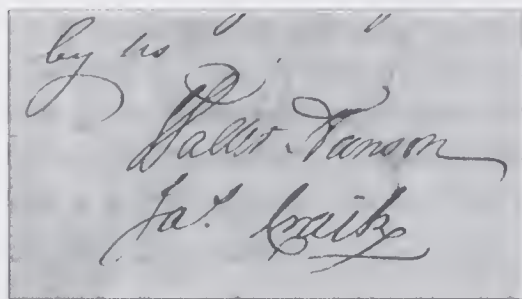 by us " "
Walter Hanson
Jas. Craik